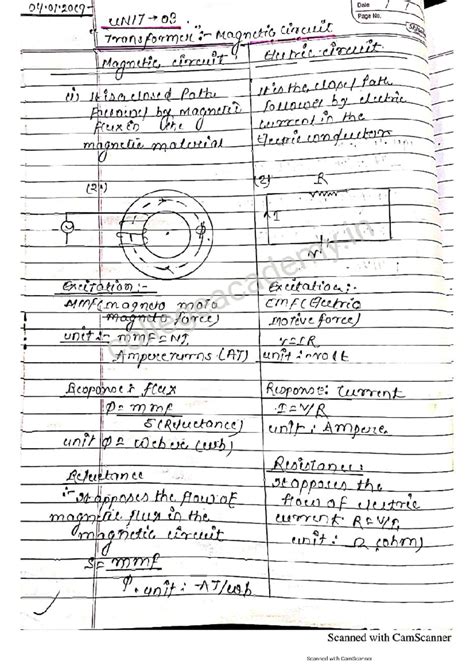 07.01.2009
Date
Page No.
UNIT → 03
Transformer :- Magnetic Circuit
Magnetic circuit
Electric circuit
(1) It is a closed Path
followed by magnetic
flux in the
magnetic material
It is the closed Path
followed by electric
current in the
Electric conductors
(2)
(2) R
I
V
Excitation :-
MMF (magneto moto
magneto force)
unit :- mmf = NI
Ampere turns (AT)
Excitation :-
EMF (Electric
Motive force)
V = IR
unit :- volt
Response : flux
Φ = mmf
S (Reluctance)
unit Φ = Weber (wb)
Response : Current
I = V/R
unit : Ampere
Reluctance
:- It opposes the flow of
magnetic flux in the
magnetic circuit
S = mmf
Φ . unit :- AT/wb
Resistance :
It opposes the
flow of electric
current R = V/I
unit : Ω (ohm)
academy.in
Scanned with CamScanner
Scanned with CamScanner